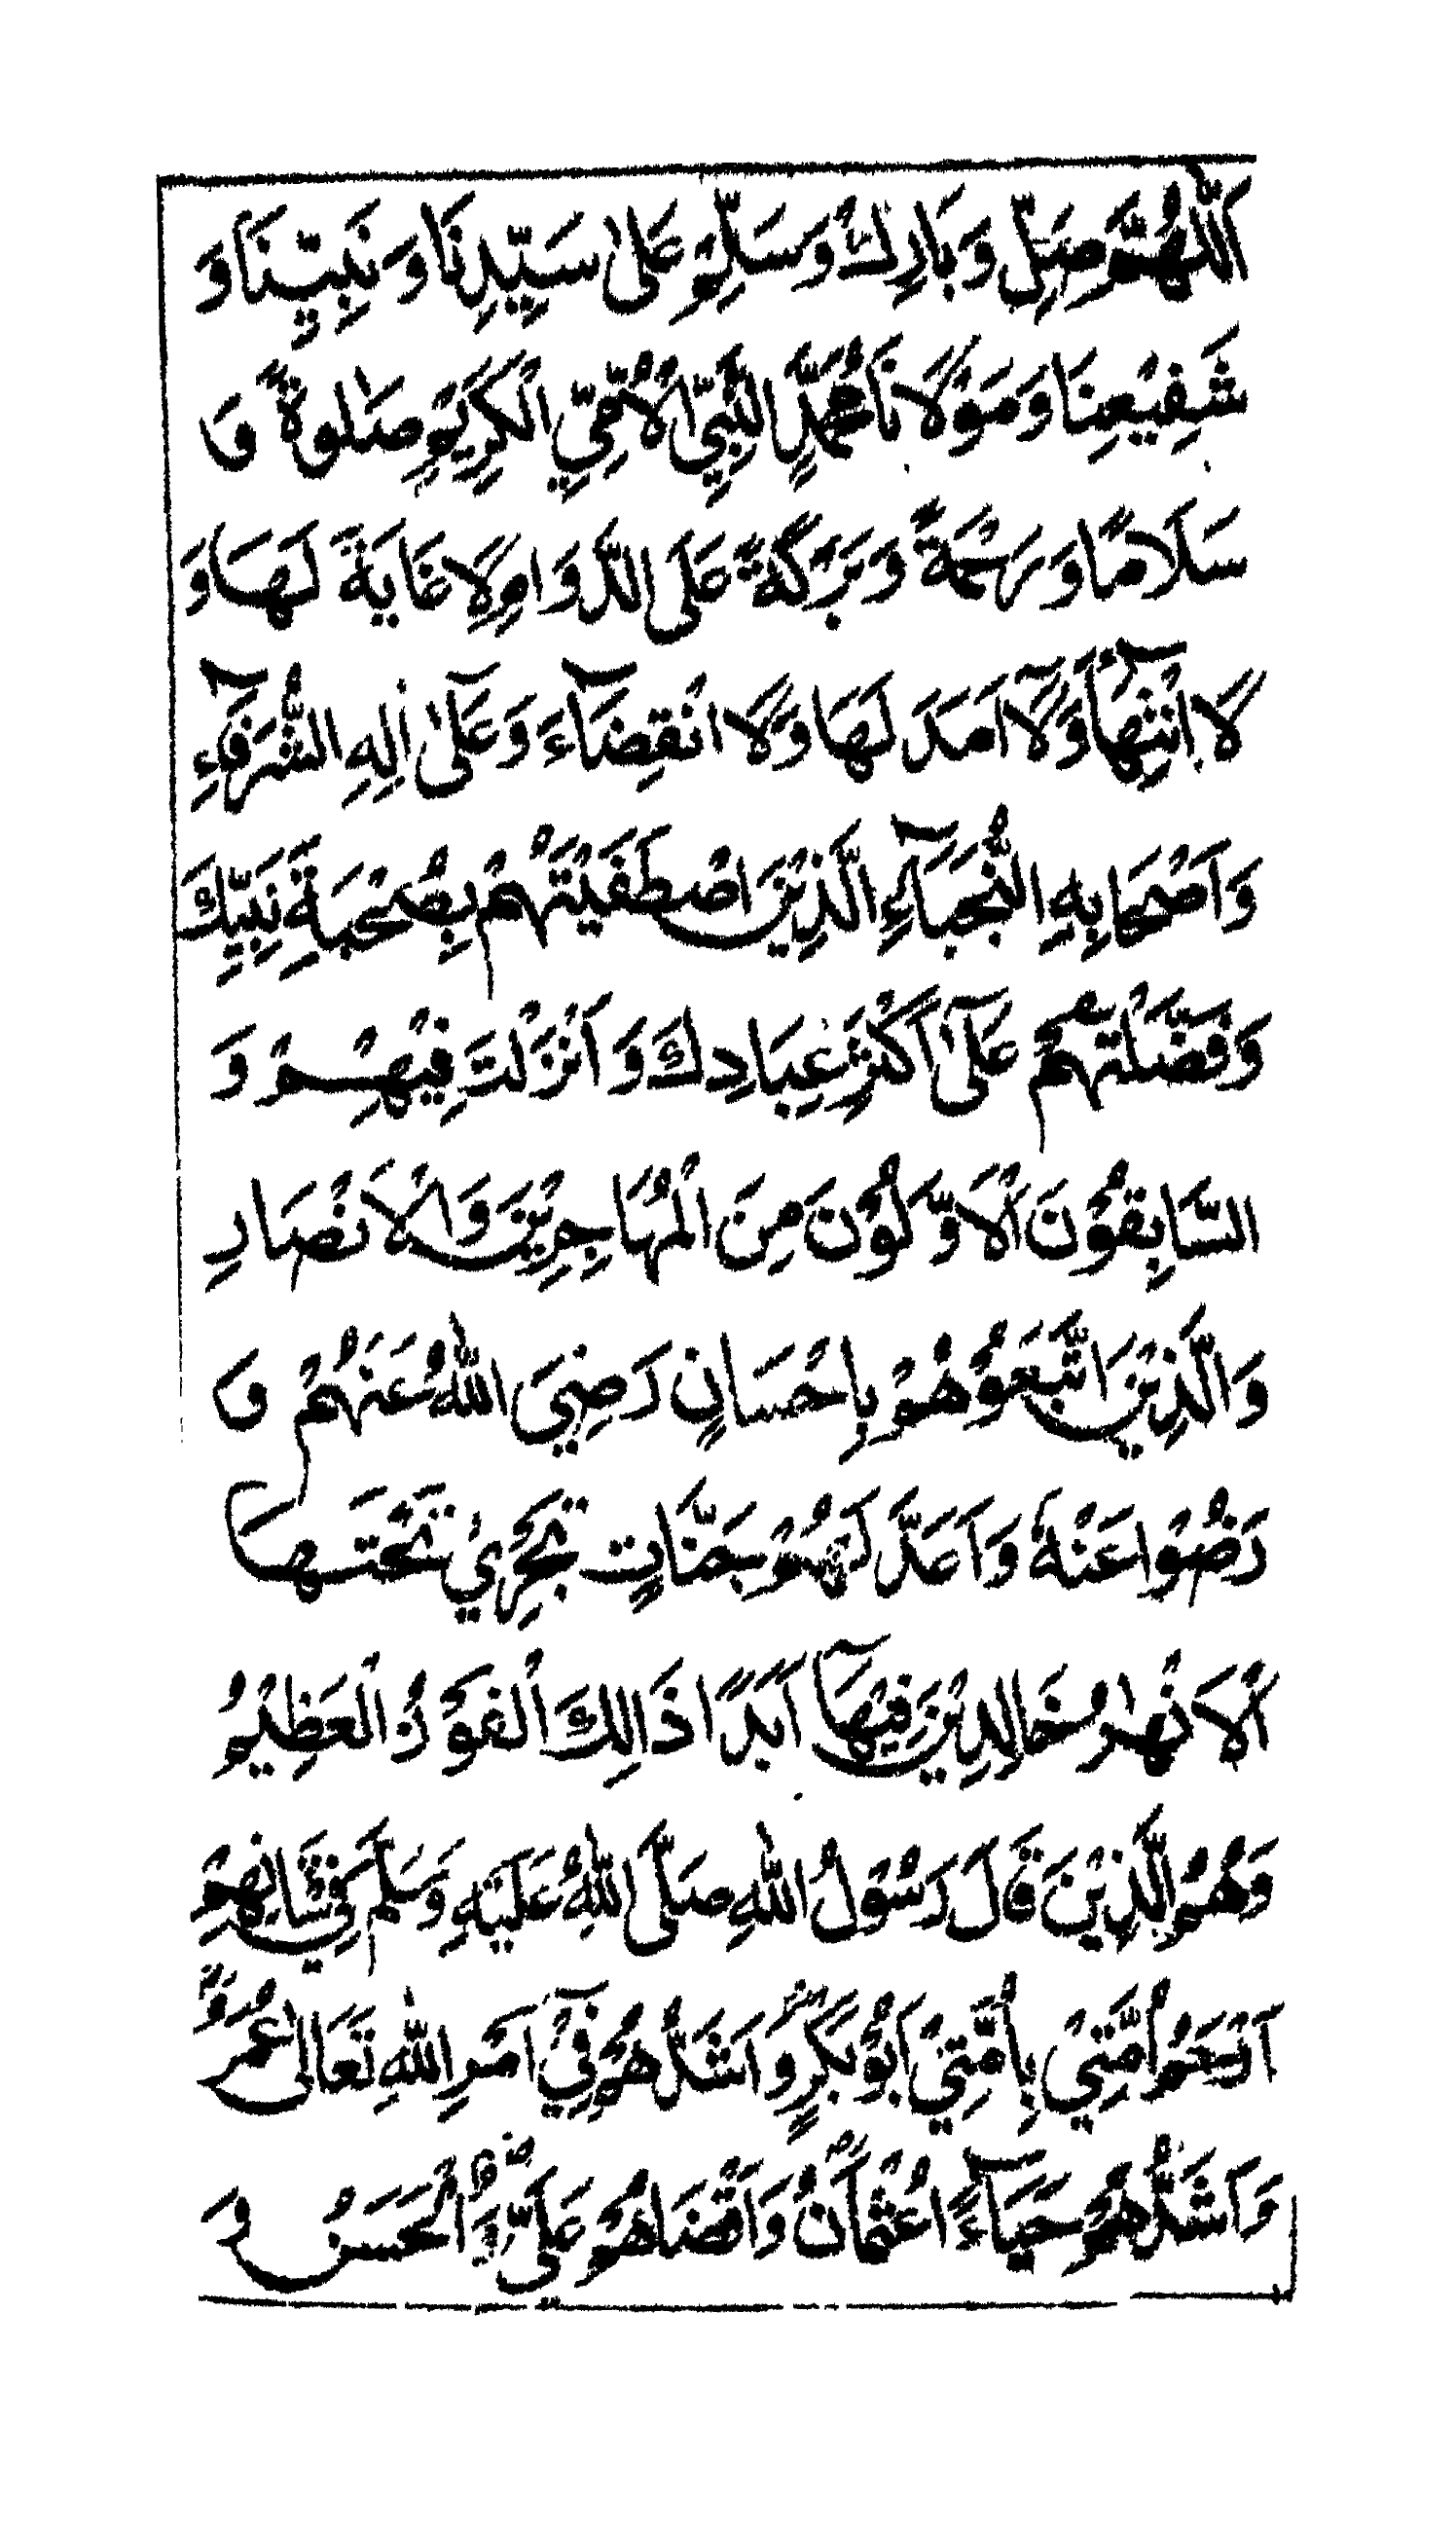 اَللّٰهُمَّ صَلِّ وَبَارِكْ وَسَلِّمْ عَلٰى سَيِّدِنَا وَنَبِيِّنَا وَ
شَفِيْعِنَا وَمَوْلَانَا مُحَمَّدٍ النَّبِيِّ الْاُمِّيِّ الْكَرِيْمِ صَلٰوةً وَ
سَلَامًا وَرَحْمَةً وَبَرَكَةً عَلَى الدَّوَامِ لَا غَايَةَ لَهَا وَ
لَا انْتِهَآءَ وَلَآ اَمَدَ لَهَا وَلَا انْقِضَآءَ وَعَلٰٓى اٰلِهِ الشُّرَفَآءِ
وَاَصْحَابِهِ النُّجَبَآءِ الَّذِيْنَ اصْطَفَيْتَهُمْ بِصُحْبَةِ نَبِيِّكَ
وَفَضَّلْتَهُمْ عَلٰٓى اَكْثَرِ عِبَادِكَ وَاَنْزَلْتَ فِيْهِمْ وَ
السَّابِقُوْنَ الْاَوَّلُوْنَ مِنَ الْمُهَاجِرِيْنَ وَالْاَنْصَارِ
وَالَّذِيْنَ اتَّبَعُوْهُمْ بِاِحْسَانٍ رَضِيَ اللّٰهُ عَنْهُمْ وَ
رَضُوْا عَنْهُ وَاَعَدَّ لَهُمْ جَنَّاتٍ تَجْرِيْ تَحْتَهَا
الْاَنْهٰرُ خَالِدِيْنَ فِيْهَآ اَبَدًا ذَالِكَ الْفَوْزُ الْعَظِيْمُ
وَهُمُ الَّذِيْنَ قَالَ رَسُوْلُ اللّٰهِ صَلَّى اللّٰهُ عَلَيْهِ وَسَلَّمَ فِيْ شَانِهِمْ
اَرْحَمُ اُمَّتِيْ بِاُمَّتِيْ اَبُوْ بَكْرٍ وَاَشَدُّهُمْ فِيْٓ اَمْرِ اللّٰهِ تَعَالٰى عُمَرُ وَ
وَاَشَدُّهُمْ حَيَآءً عُثْمَانُ وَاَقْضَاهُمْ عَلِيٌّ وَالْحَسَنُ وَ